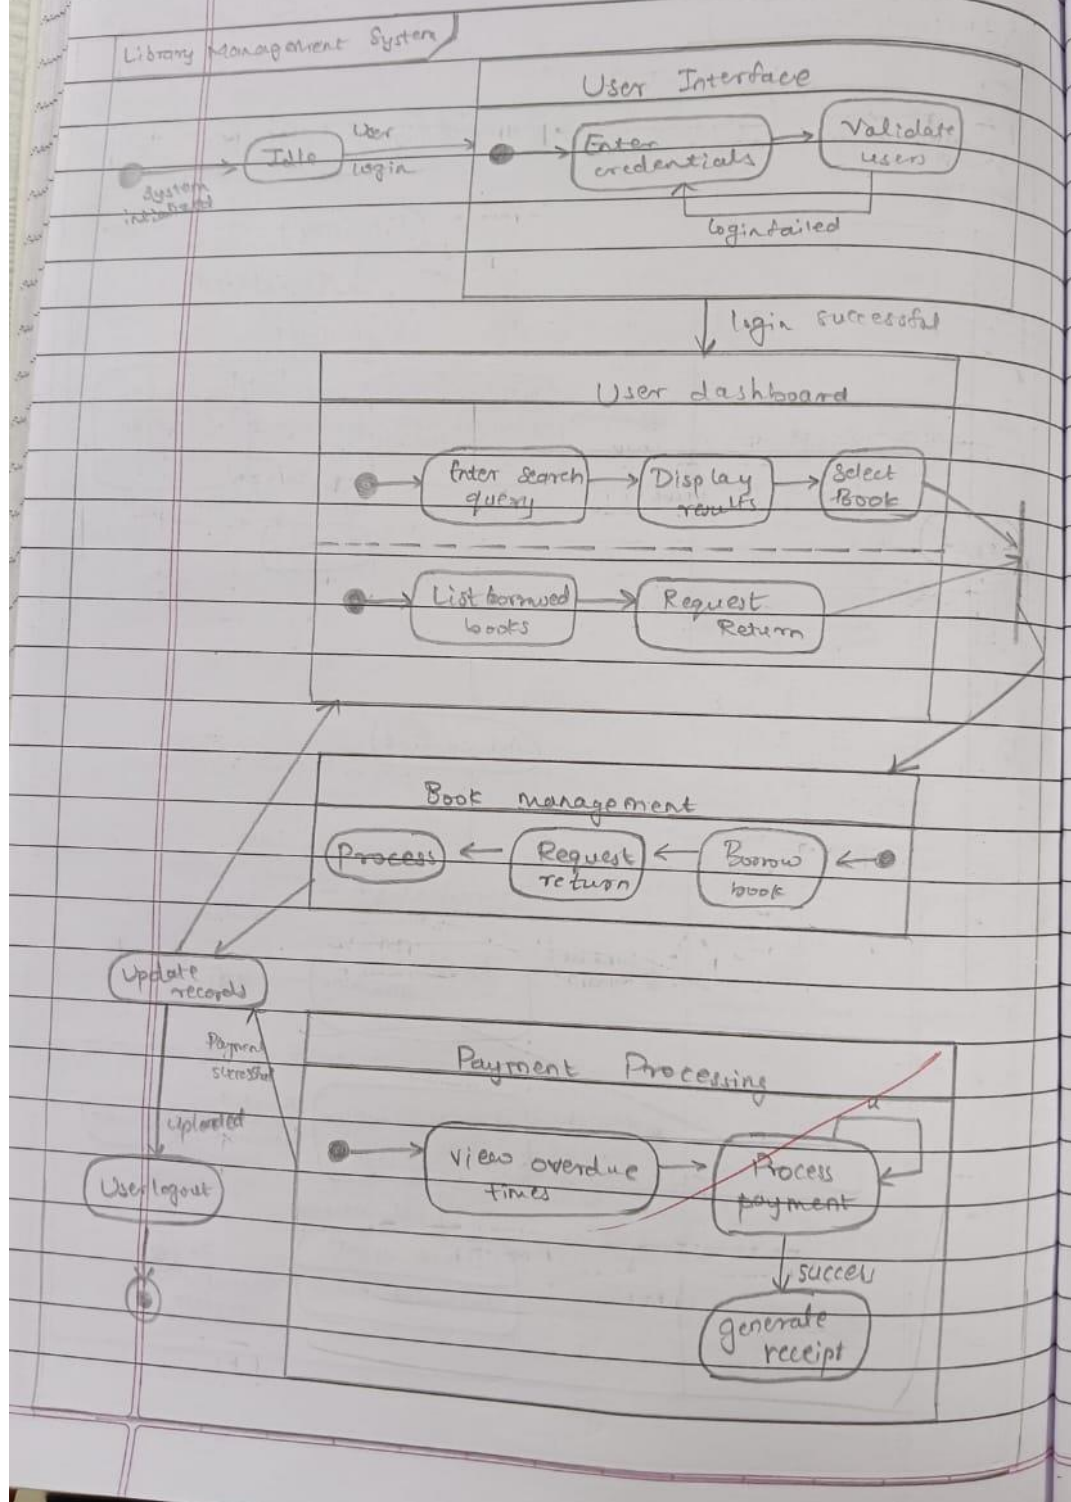 Library Management System
User Interface
Idle
User
login
Enter
credentials
Validate
users
System
login failed
login successful
User dashboard
Enter search
query
Display
results
Select
Book
List borrowed
books
Request
Return
Book management
Process
Request
return
Borrow
book
Update
records
Payment
Payment Processing
View overdue
times
Process
payment
User logout
generate
receipt